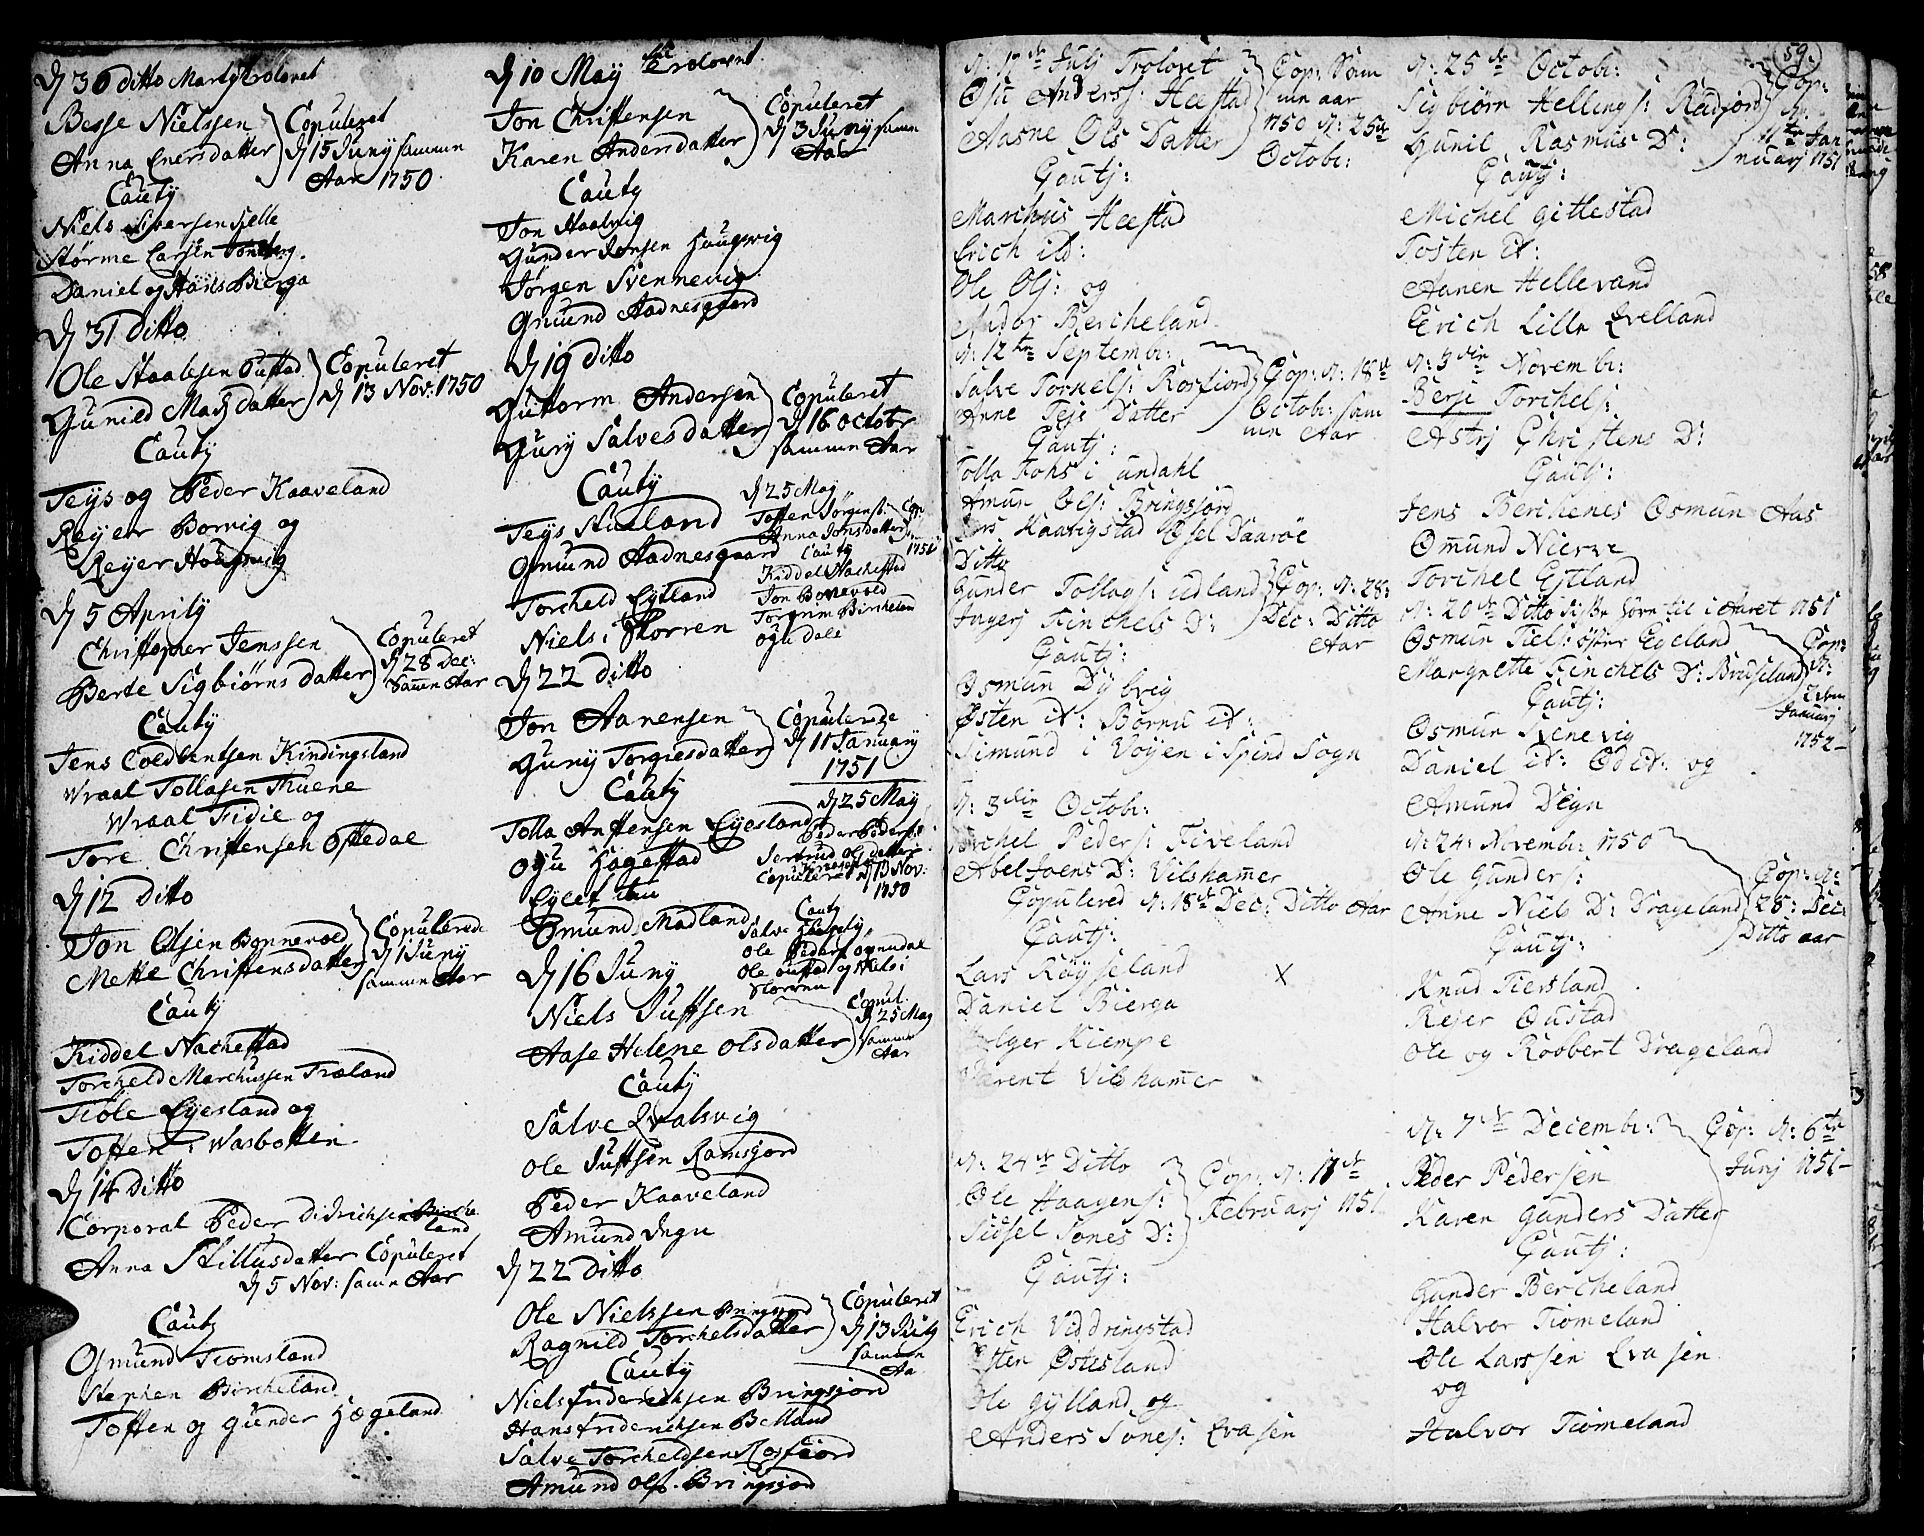 d 30 ditto Marty Trolovet
Besse Nielssen
Anna Enersdatter
Copuleret
d 15 Juny samme
Aar 1750
Cauty
Niels Siversen Sielle
Størme Larsen
Daniel og Hans Bierga
d 31 ditto
Ole Staalesen Oustad
Gunild Mads datter
Copuleret
d 13 Nov: 1750
Cauty
Teys og Peder Kaaveland
Reyer Bornig og
Reyer
d 5 Aprily
Christopher Jenssen
Berte Sigbiørns datter
Copuleret
d 28 Dec:
Samme Aar
Cauty
Jens Coldventsen Kindingsland
Wraal Tollasen Thuene
Wraal Tidie og
Tore Christensen Oftedal
d 12 ditto
Jon Olsen Bonnevold
Mette Christensdatter
Copulerede
d 1 Juny
samme Aar
Cauty
Kiddel Nachestad
Torcheld Marchussen Træland
Tiøle Eyesland og
Tosten i Wasbotten
d 14 Ditto
Corporal Peder Didrichsen Birche
land
Anna Skillusdatter Copuleret
d 5 Nov: samme Aar
Cauty
Osmund Tiomsland
Stephen Bircheland
Tosten og Gunder Hægeland
d 10 May Trolovet
Jon Christensen
Karen Andersdatter
Copuleret
d 3 Juny samme
Aar
Cauty
Jon Haalvig
Gunder Jensen Haugsvig
Jørgen Svennevig
Gmund Aadnesgaard
d 19 ditto
Guttorm Andersen
Gury Salvesdatter
Copuleret
d 16 octobr
samme Aar
Cauty
Teys Stueland
Osmund Aadnesgaard
Torcheld Eytland
Niels i Skorren
d 25 Maj
Tosten Jørgens:
Anna Jonsdatter
Cop:
1751
Cauty
Kiddel Nachestad
Jon Bonevold
Torgrim Birchelan
ogu dale
d 22 ditto
Jon Aanensen
Guny Torgiesdatter
Copulerede
d 11 January
1751
Cauty
Tolla Anstensen Eyesland
ogu Hogestad
Eyeet
Omund Madland
d 25 May
Peder Peders:
Jertrud Ols datter
Copuleret d 13 Nov:
1750
Cauty
Ole Peders
Ole Oustad og Niels i
Skorren
d 16 Juny
Niels Justsen
Aase Helene Olsdatter
Copul.
d 25 May
samme
Aar
Cauty
Salve Qvalsvig
Ole Justsen Ramsjord
Peder Kaaveland
Amund
d 22 ditto
Ole Nielssen Bringsiord
Ragnild Torchelsdatter
Copuleret
d 13 July
samme
Aa
Cauty
Niels friderichsen Bringsjord
Hans friderichsen Belland
Salve Torcheldsen Rosfiord
Amund Ols. Bringsjord
59.
d: 17de Julj Troloret
Osu Anders: Heestad
Aasne Ols Datter
Cop: Sam
me aar
1750 d: 25de
Octobr:
Cautj:
Marchus Heestad
Erich ild:
Ole Ols: og
Andor Bercheland
d: 12te Septembr:
Salve Torkels: Rosfiord
Anne Teje Datter
Cop: d: 18de
Octobr: sam
me Aar
Cautj:
Tolla Tohs i undahl
Amun Ols: Bringsjord
Lars Haavigstad Øsel Daarøe
Ditto
Gunder Tollags: udland
Ingerj Finchels D:
Cop: d: 28:
Dec: Ditto
Aar
Cautj:
Osmun Dybvig
Østen it: Børnu it:
Simund i Vøyen i Spind Sogn
d: 3die Octobr:
Torchel Peders: Fiveland
Abel Joens D: Vilshamer
Copulered d: 18de Dec: Ditto Aar
Cautj:
Lars Røyseland X
Daniel Bierga
Holger Kiempe
Berent Vilshamer
d: 24de Ditto
Ole Haagens:
Sidsel Tones D:
Cop: d: 17de
Februarj 1751
Cautj:
Erich Viddringstad
Osten Ostesland
Ole Gylland og
Anders Tones: Qvasen
d: 25de Octobr:
Sigbiørn Hellings: Rødsjord
Gunil Rasmus D:
Cop:
d:
11te Jan
nuarj 1751
Cautj:
Michel Gitlestad
Tosten it:
Aanen Hellevand
Erich Lille Qvelland
d: 3die Novembr:
Berje Torchels:
Astrj Christens D:
Cautj:
Jens Berchenes Osmun Aas
Omund Nierve
Torchel Eytland
d: 20de Ditto disse hører til i Aaret 1751
Osmun Tiels: øfre Egeland
Margrette Finchels D: Brudseland
Cop:
d:
Januarj
1752
Cautj:
Osmun Kenevig
Daniel it: Od it: og
Amund Deyn
d: 24: Novembr: 1750
Ole Gunders:
Anne Niels D: Drageland
Cop: d:
28: Dec:
Ditto aar
Cautj:
Knud Fiersland
Reier Oustad
Ole og Roobert Drageland
d: 7de Decembr:
Peder Pedersen
Karen Gunders Datter
Cop: d: 6te
Junj 1751
Cautj:
Gunder Bercheland
Halvor Tiomeland
Ole Larssen Qvasen
og
Halvor Tiomeland